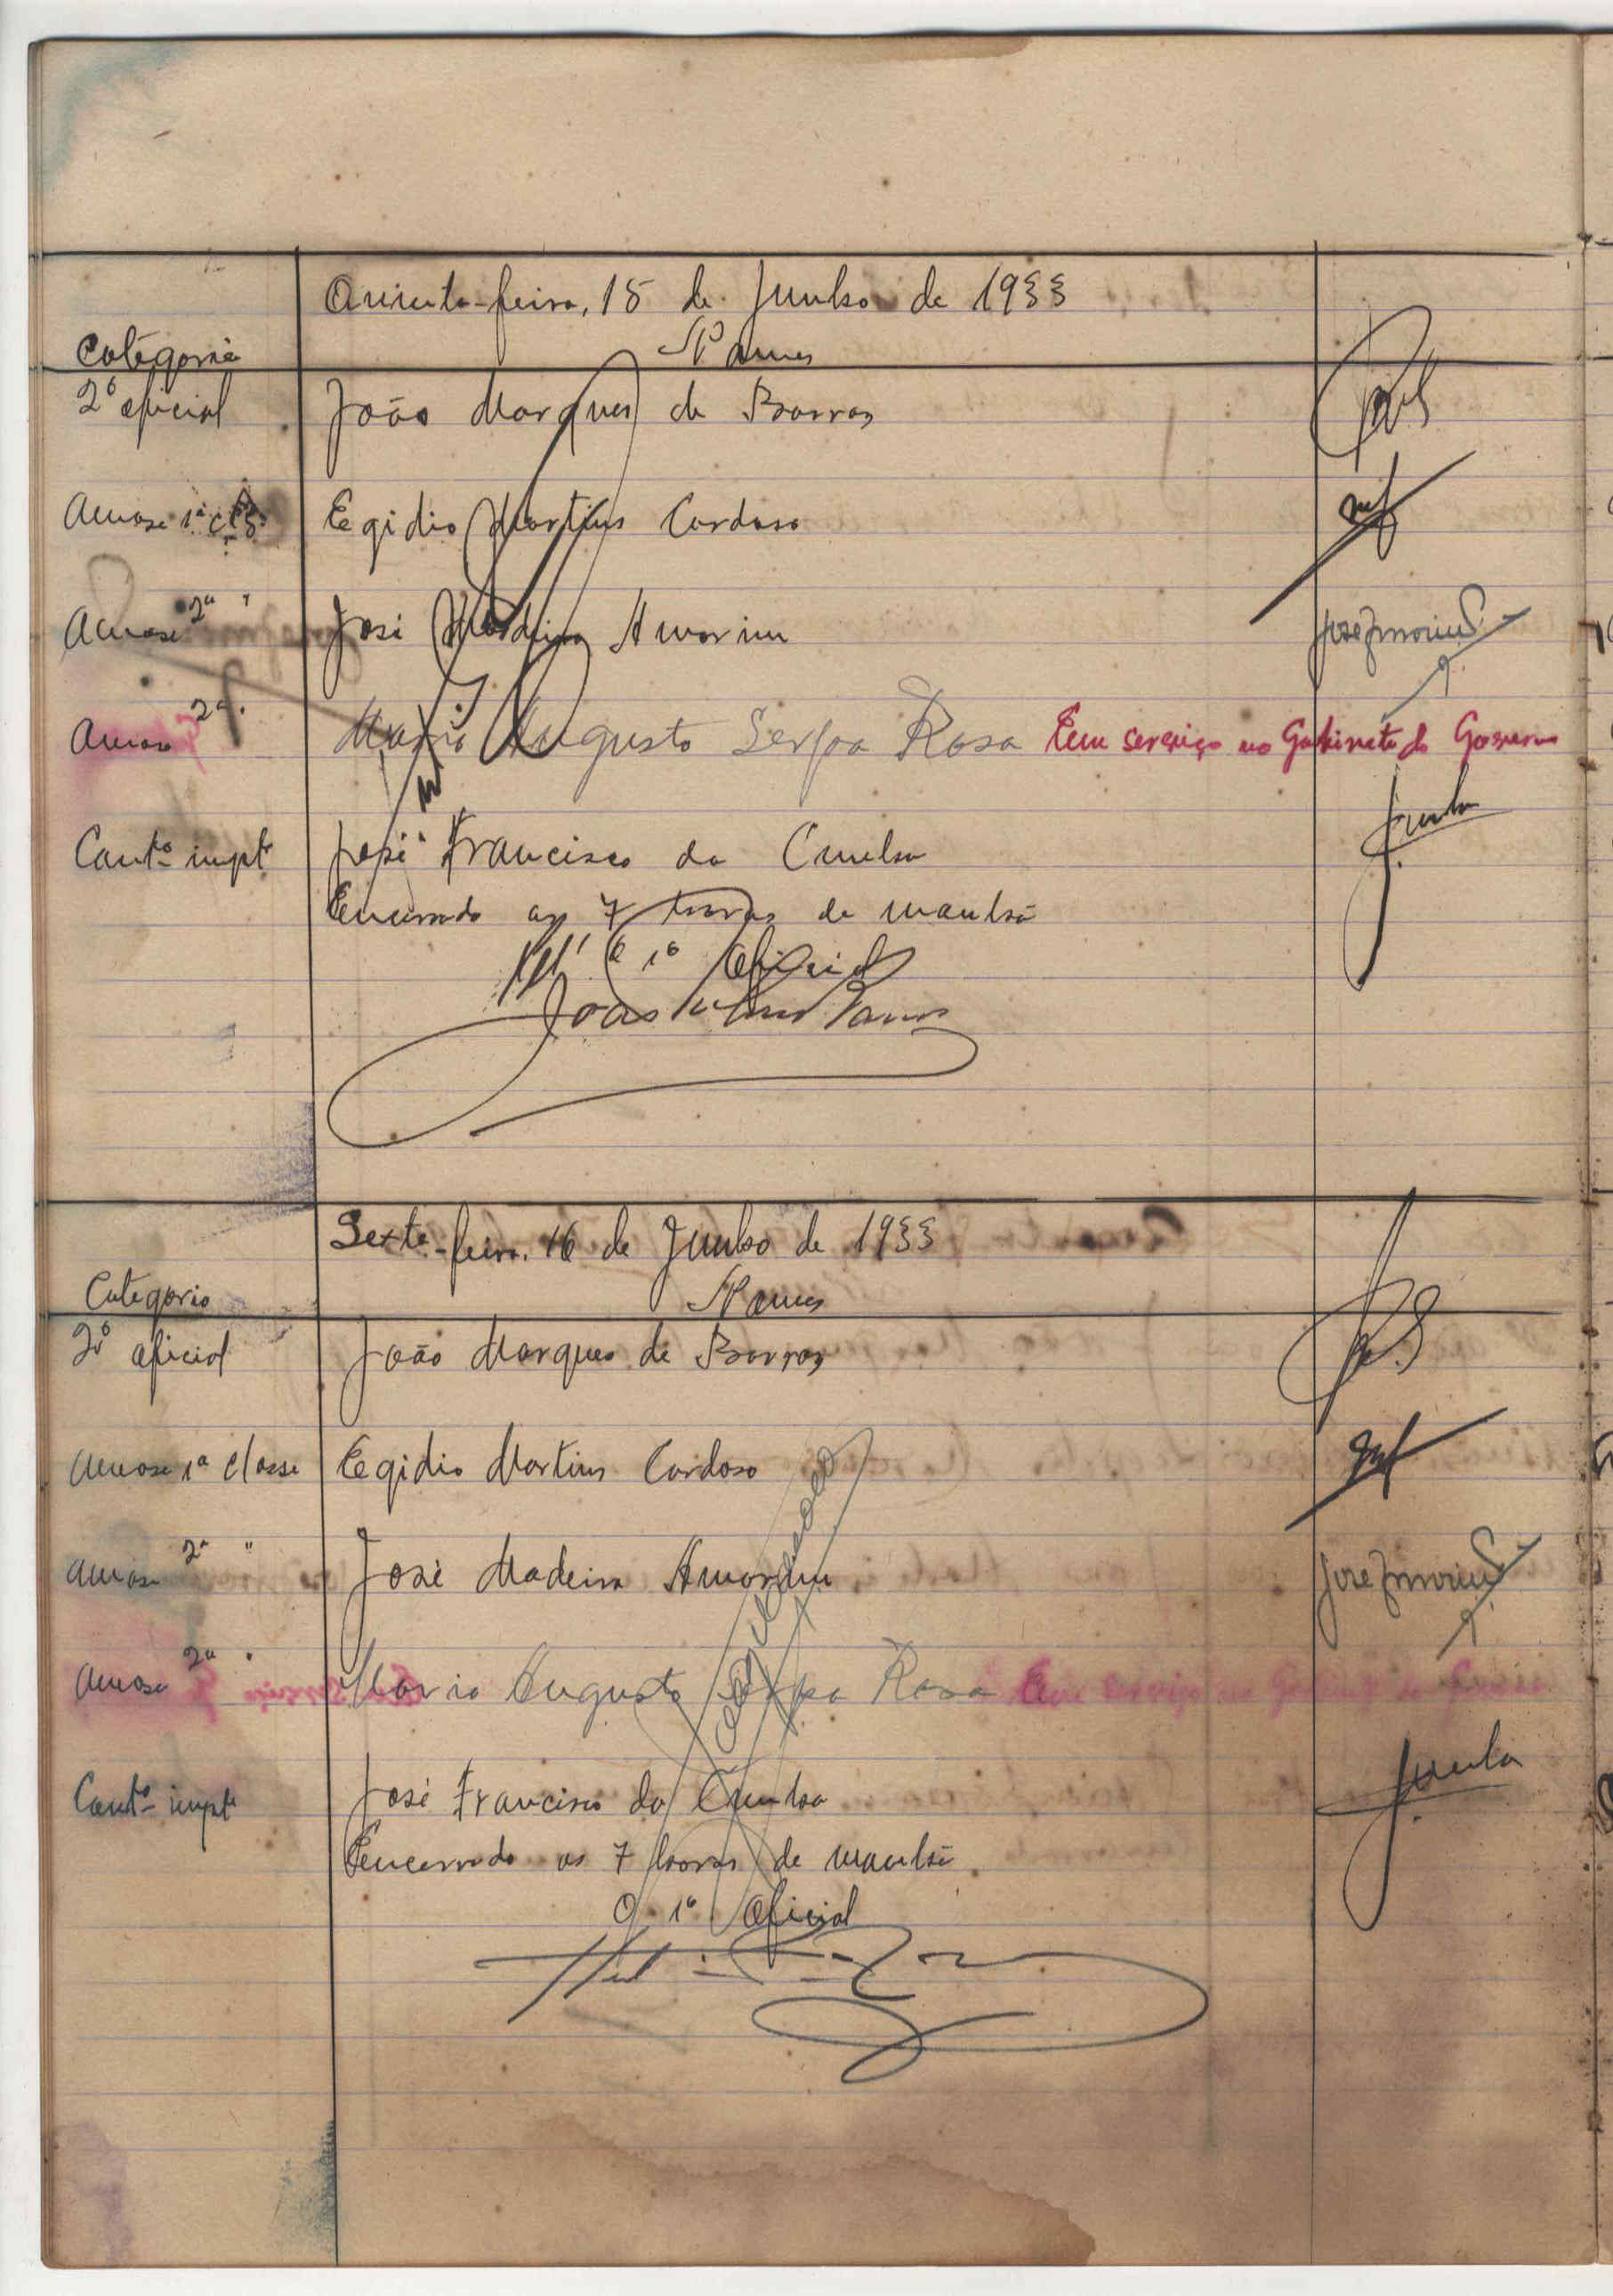 Quinta-feira, 15 de Junho de 1933
Categoria Nomes
2º oficial João Marques de Barros
Amase 1ª cls Egidio Martins Cardoso
Amase 2ª " José Madeira Amorim José Amorim
Amase 2ª " Mario Augusto Serpa Rosa Em serviço no Gabinete do Governo
Contº impt José Francisco da Cunha Cunha
Encerrado as 7 horas de manhã
O 1º Oficial
Sexta-feira, 16 de Junho de 1933
Categoria Nomes
2º oficial João Marques de Barros
Amase 1ª classe Egidio Martins Cardoso
Amase 2ª " José Madeira Amorim José Amorim
Amase 2ª " Mario Augusto Serpa Rosa Em serviço no Gabinete do Governo
Contº impt José Francisco da Cunha Cunha
Encerrado as 7 horas de manhã
O 1º Oficial